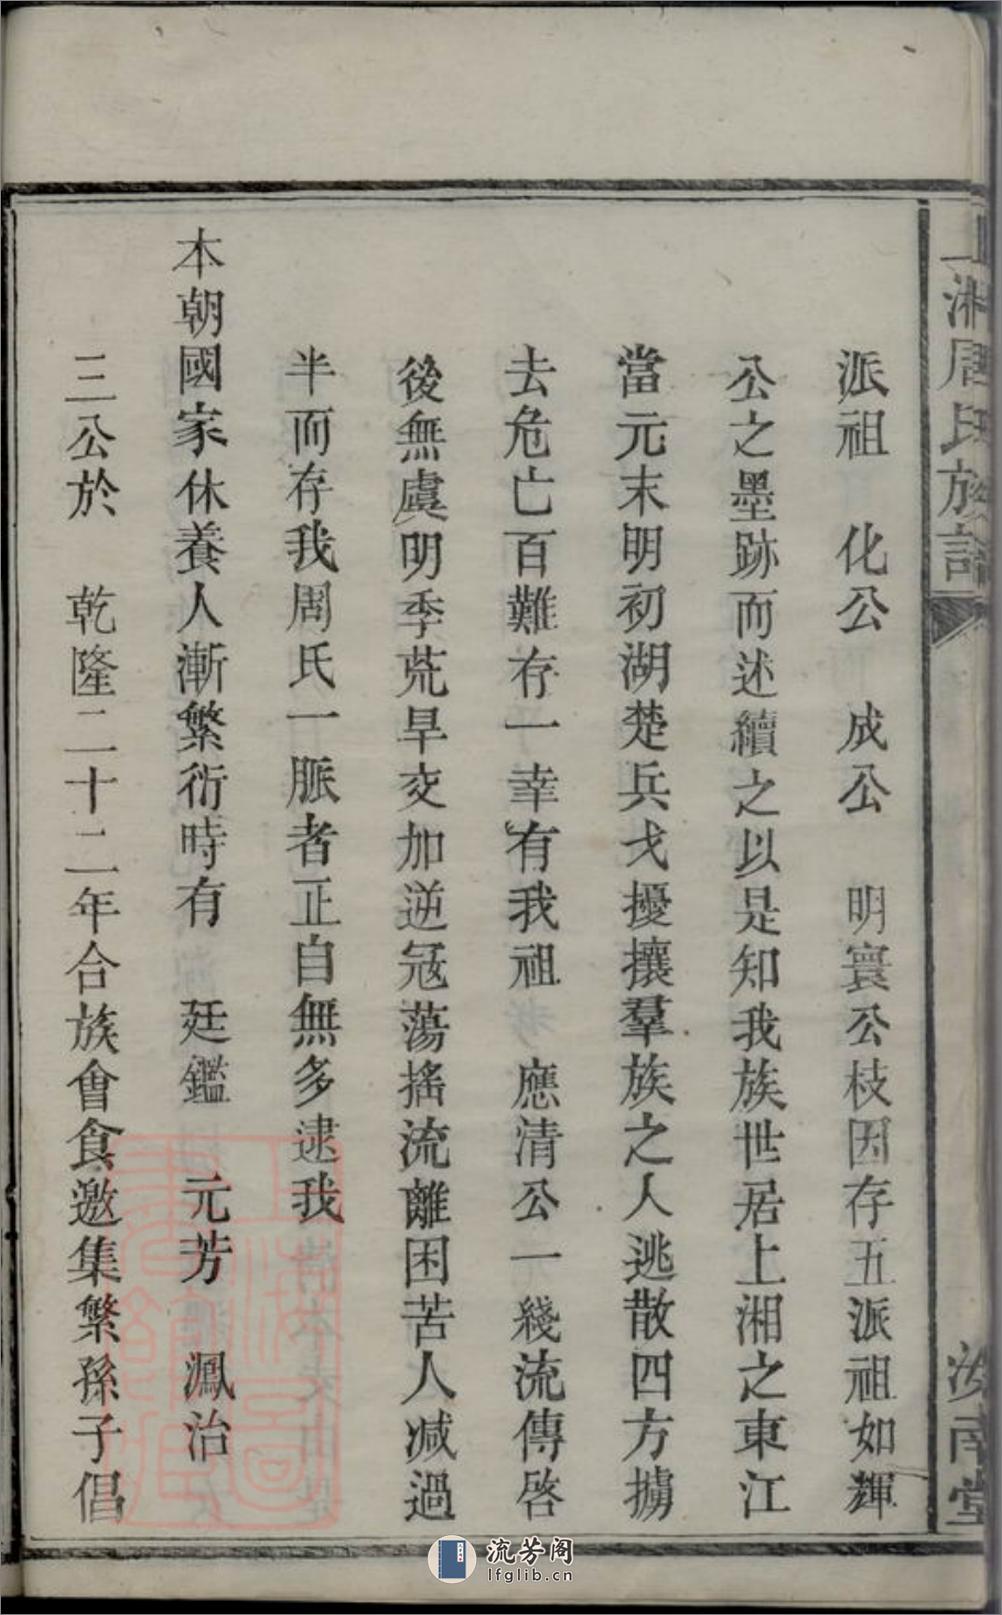 上湘周氏族譜
汝南堂
派祖　化公　成公　明寰公枝因存五派祖如輝
公之墨跡而述續之以是知我族世居上湘之東江
當元末明初湖楚兵戈擾攘羣族之人逃散四方擄
去危亡百難存一幸有我祖　應清公一綫流傳啓
後無虞明季荒旱交加逆冦蕩搖流離困苦人減過
半而存我周氏一脈者正自無多逮我
本朝國家休養人漸繁衍時有　廷鑑　元芳　鳳治
三公於　乾隆二十二年合族會食邀集繁孫子倡
上海圖書館藏
流芳阁
lfglib.cn